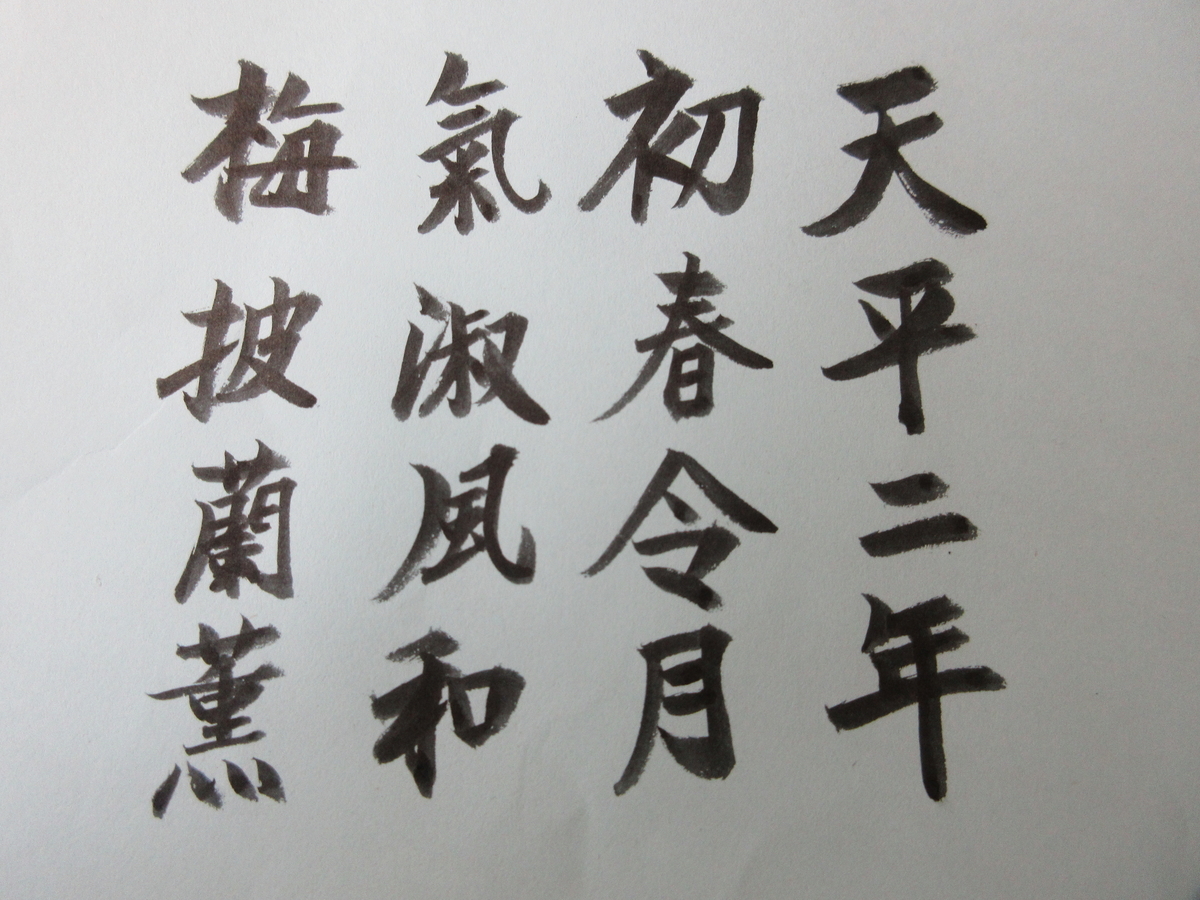 天平二年
初春令月
氣淑風和
梅披蘭薫